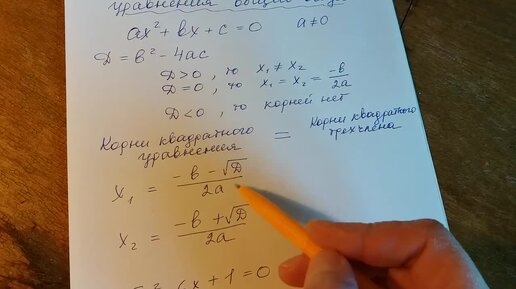 уравнения общий
ax² + bx + c = 0   a ≠ 0
D = b² - 4ac
D > 0, то x₁ ≠ x₂
D = 0, то x₁ = x₂ = -b/2a
D < 0, то корней нет
Корни квадратного уравнения = Корни квадратного трехчлена
x₁ = (-b - √D)/2a
x₂ = (-b + √D)/2a
x + 1 = 0